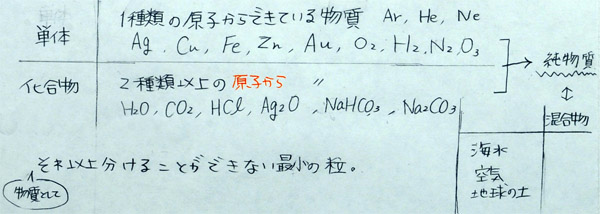 単体
1種類の原子からできている物質 Ar, He, Ne
Ag, Cu, Fe, Zn, Au, O2, H2, N2, O3
純物質
化合物
2種類以上の原子から 〃
H2O, CO2, HCl, Ag2O, NaHCO3, Na2CO3
混合物
海水
空気
地球の土
それ以上分けることができない最小の粒。
物質として